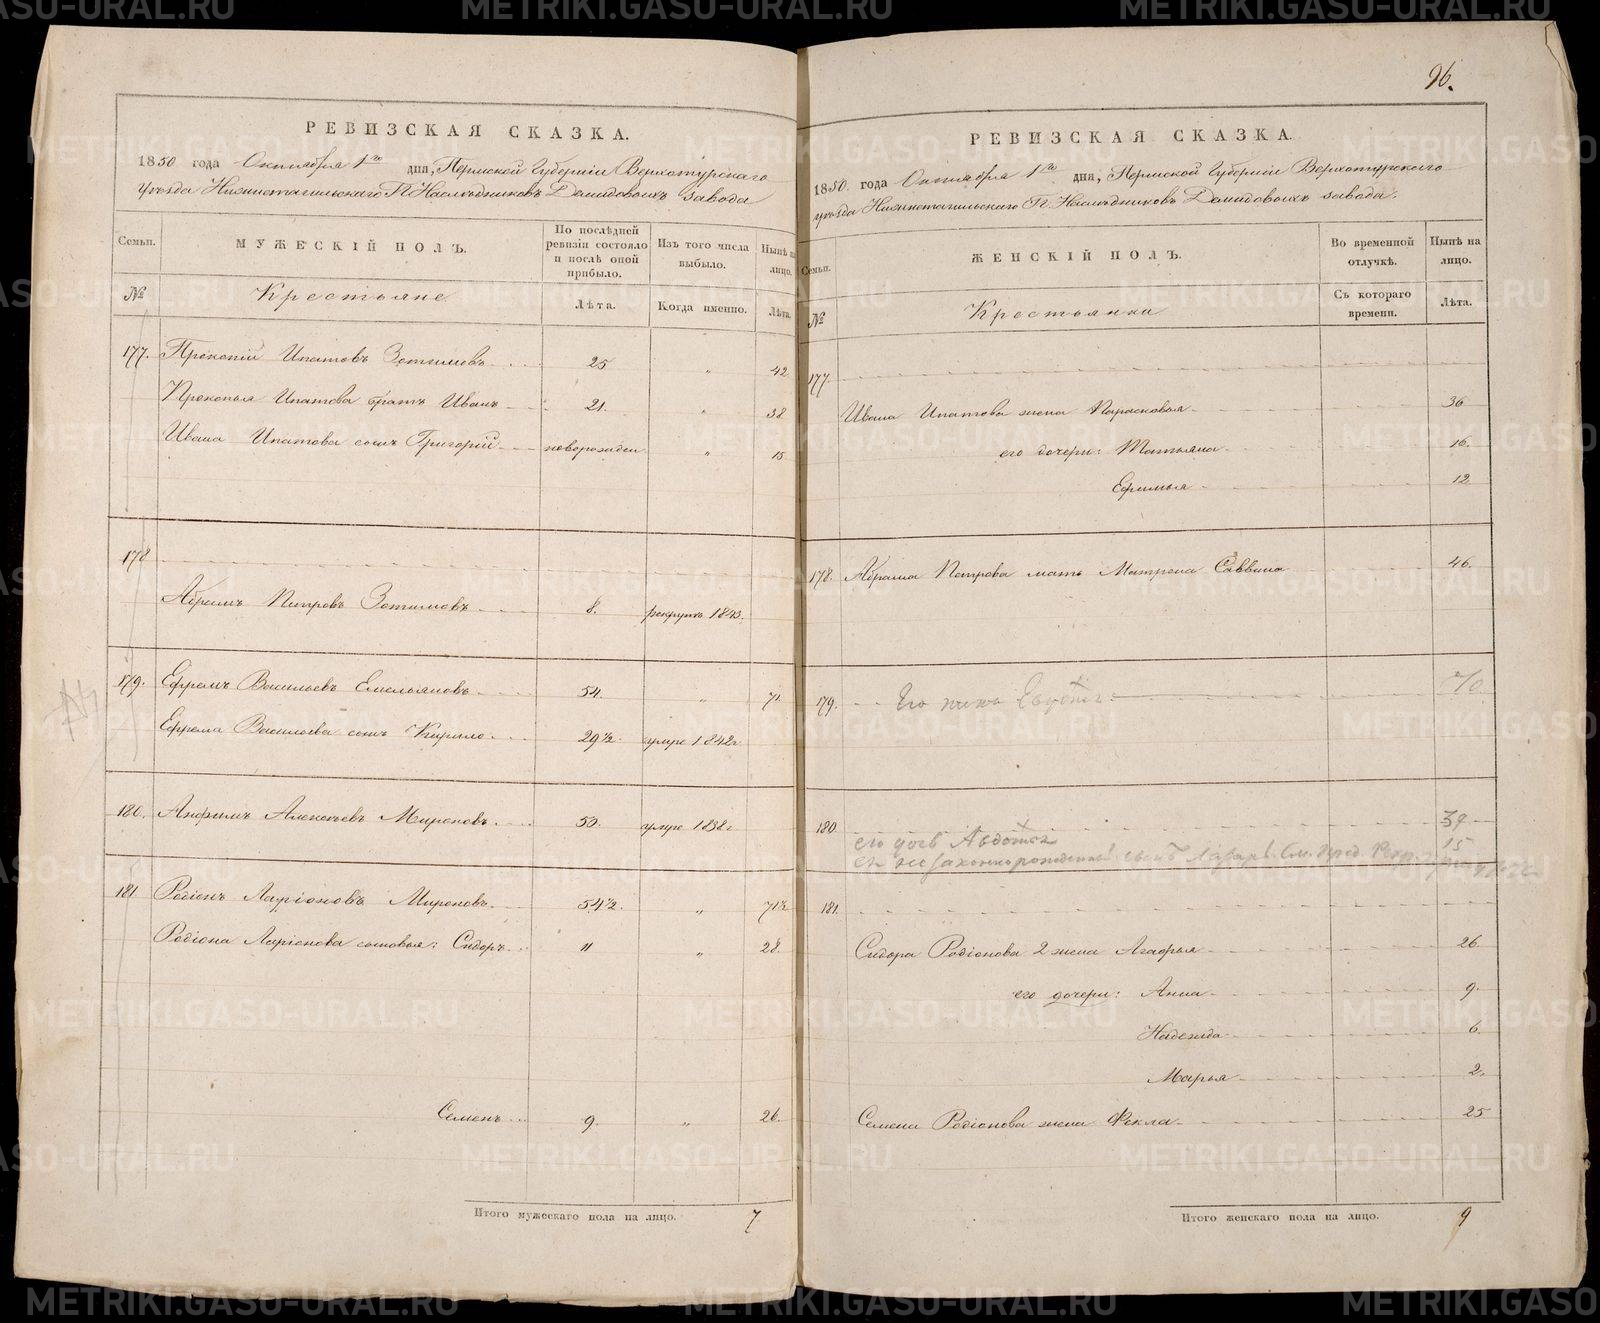 METRIKI.GASO-URAL.RU
96.
РЕВИЗСКАЯ СКАЗКА.
1850 года Октября 1го дня, Пермской Губерніи Верхотурскаго
уезда Нижнетагильскаго Г.г. Наслѣдниковъ Демидовыхъ завода
Семьи.
МУЖЕСКІЙ ПОЛЪ.
По послѣдней ревизіи состояло и послѣ оной прибыло.
Изъ того числа выбыло.
Нынѣ на лицо.
№
Крестьяне
Лѣта.
Когда именно.
Лѣта.
177. Прокопій Ипатовъ Зотимовъ 25 „ 42
Прокопья Ипатова братъ Иванъ 21. „ 38
Ивана Ипатова сынъ Григорій новорожден „ 15
178
Абрамъ Петровъ Зотимовъ 8. рекрутъ 1843.
179. Ефремъ Васильевъ Емельяновъ 54. „ 71
Ефрема Васильева сынъ Кирило 29½. умре 1842г
180. Анфимъ Алексѣевъ Мироновъ 53. умре 1838г
181 Родіонъ Ларіоновъ Мироновъ 54½. „ 71½
Родіона Ларіонова сыновья: Сидоръ 11 „ 28.
Семенъ 9. „ 26.
Итого мужескаго пола на лицо. 7
РЕВИЗСКАЯ СКАЗКА.
1850. года Октября 1го дня, Пермской Губерніи Верхотурскаго
уезда Нижнетагильскаго Г.г. Наслѣдниковъ Демидовыхъ завода.
Семьи.
ЖЕНСКІЙ ПОЛЪ.
Во временной отлучкѣ.
Нынѣ на лицо.
№
Крестьянки
Съ котораго времени.
Лѣта.
177.
Ивана Ипатова жена Парасковья 36
его дочери: Татьяна 16.
Ефимья 12
178. Абрама Петрова мать Матрена Саввина 46.
179. Его жена Евдотья 70
180. 39
его дочь Авдотья 15
ея незаконнорожденный сынъ Лазарь. См. пред.
181.
Сидора Родіонова 2 жена Агафья 26
его дочери: Анна 9.
Надежда 6.
Марья 2.
Семена Родіонова жена Фекла 25
Итого женскаго пола на лицо. 9